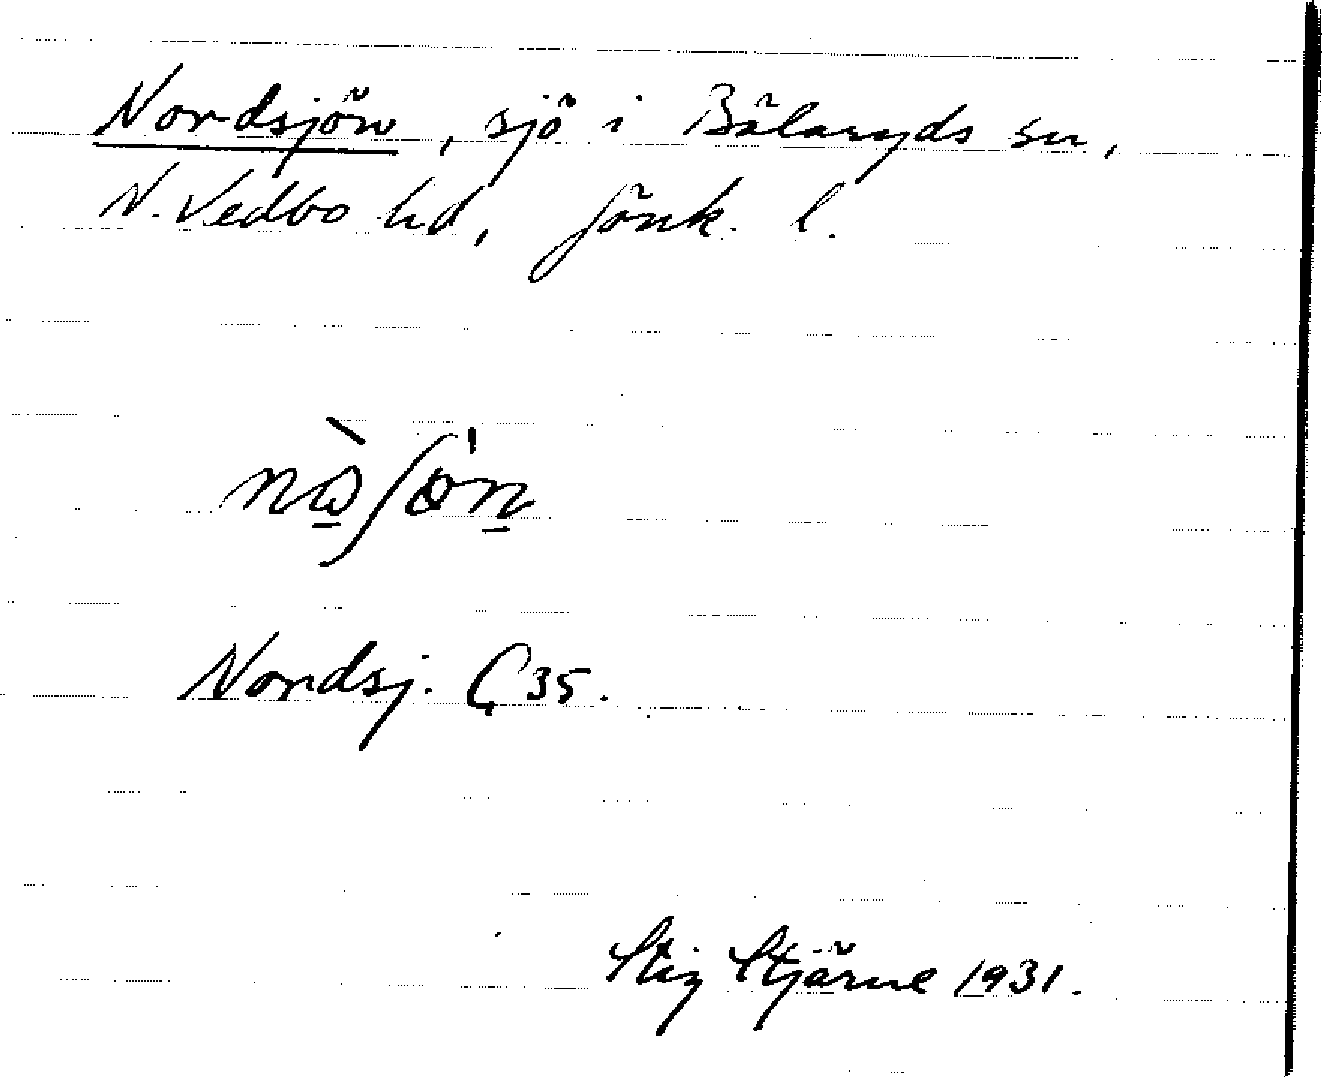 Nordsjön, sjö i Bälaryds sn,
N. Vedbo hd, Jönk. l.
Nordsj. G 35.
Stig Stjärne 1931.